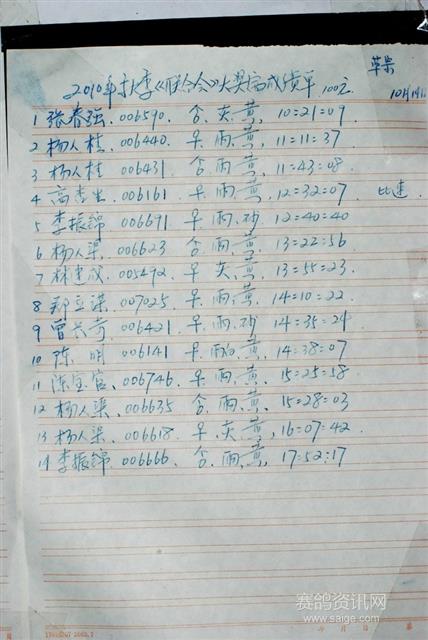 2010年秋季《联合会》大奖赛成绩单 100元.
10月19日
1 张春强, 006590. 含, 灰, 黄, 10=21=09
2 杨人桂, 006440. 早, 雨, 黄, 11=11=37
3 杨人桂 006431 含, 雨, 黄, 11=43=08,
4 高 生 006161 早, 雨, 黄, 12=32=07 比速
5 李振锦 006691 早, 雨, 砂 12=40=40
6 杨人渠. 006623 含, 雨, 黄, 13=22=56
7 林建成 005492. 早, 灰, 黄, 13=55=23.
8 郑立 007025. 早, 雨, 黄, 14=10=22
9 曾长 006421 早, 雨, 砂 14=35=24
10 陈 明 006141 早, 雨, 黄, 14:38=07
11 陈宝官, 006746. 早, 雨, 黄. 15=25=58
12 杨人渠, 006635 含, 雨, 黄, 15=28=03
13 杨人渠, 006618 早, 灰, 黄, 16=07=42
14 李振锦 006666. 含, 雨, 黄, 17=52:17
年 月 日 第
赛鸽资讯网
www.saige.com